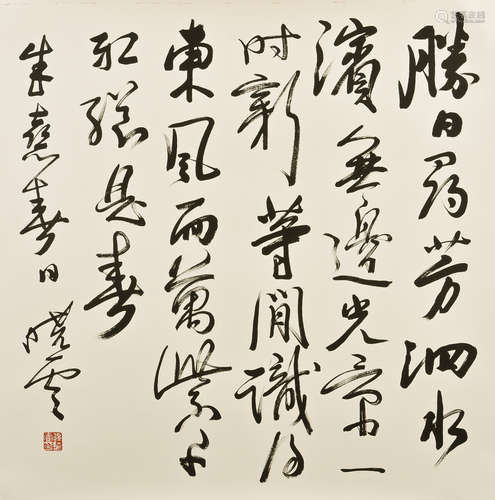 勝日尋芳泗水
濱無邊光景一
时新等閒識得
東風面萬紫千
红總是春
朱熹春日 曉雲